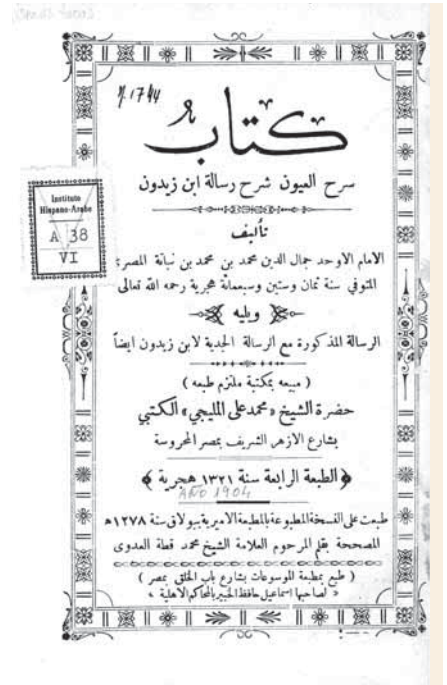 n. 1744
كتاب
سرح العيون شرح رسالة ابن زيدون
تأليف
Instituto
Hispano-Arabe
A 38
VI
الامام الاوحد جمال الدين محمد بن محمد بن نباتة المصري
المتوفي سنة ثمان وستين وسبعمائة هجرية رحمه الله تعالى
ويليه
الرسالة المذكورة مع الرسالة الجدية لابن زيدون ايضاً
( مبيعه بمكتبة ملتزم طبعه )
حضرة الشيخ «محمد على المليجي» الكتبي
بشارع الازهر الشريف بمصر المحروسة
﴿ الطبعة الرابعة سنة ١٣٢١ هجرية ﴾
AÑO 1904
طبعت على النسخة المطبوعة بالمطبعة الاميرية ببولاق سنة ١٢٧٨ ه
المصححة بقلم المرحوم العلامة الشيخ محمد قطة العدوى
( طبع بمطبعة الموسوعات بشارع باب الخلق بمصر )
« لصاحبها اسماعيل حافظ الخبير بالمحاكم الاهلية »